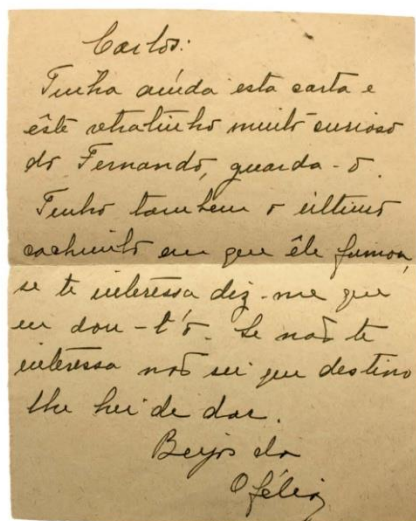 Carlos:
Tinha ainda esta carta e
êste retratinho muito curioso
do Fernando, guarda-o.
Tenho tambem o último
cachimbo em que êle fumou,
se te interessa diz-me que
eu dou-t'o. Se não te
interessa não sei que destino
lhe hei de dar.
Beijos da
Ofélia